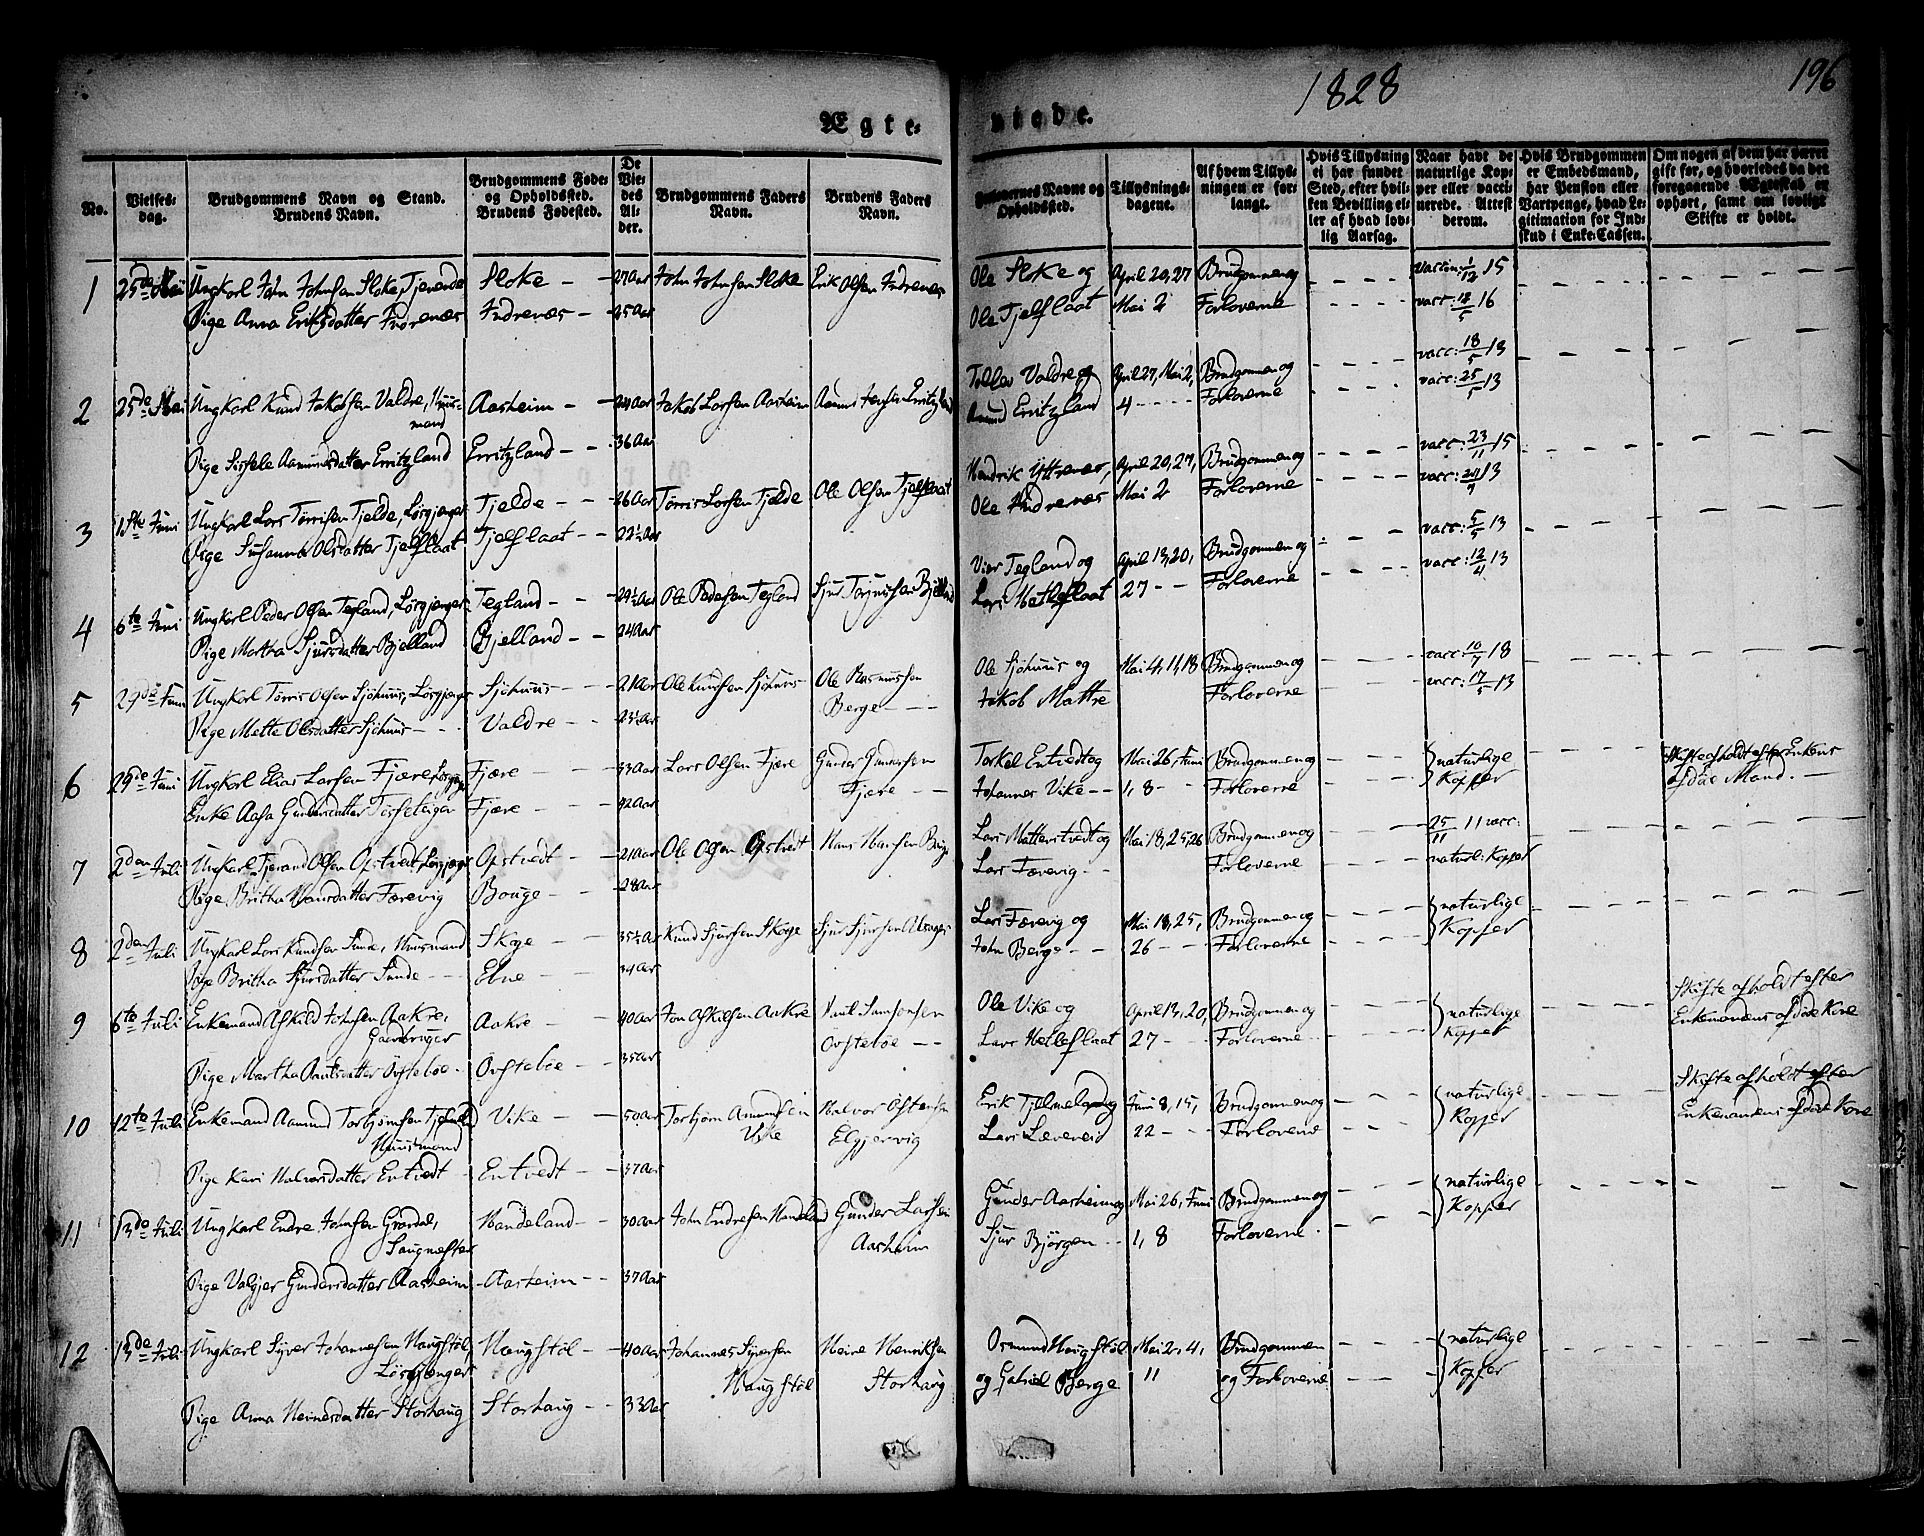 1828
196
Ægte-
viede.
No.
Vielses-dag.
Brudgommens Navn og Stand. Brudens Navn.
Brudgommens Føde- og Opholdssted. Brudens Fødested.
De Vie-des Al-der.
Brudgommens Faders Navn.
Brudens Faders Navn.
Forlovernes Navne og Opholdssted.
Tillysnings-dagene.
Af hvem Tillys-ningen er for-langt.
Hvis Tillysning ei har fundet Sted, efter hvil-ken Bevilling el-ler af hvad lov-lig Aarsag.
Naar havt de naturlige Kop-per eller vacci-nerede. Attest derom.
Hvis Brudgommen er Embedsmand, har Pension eller Vartpenge, hvad Le-gitimation for Ind-skud i Enke-Cassen.
Om nogen af dem har været gift før, og hvorledes da det foregaaende Ægteskab er ophørt, samt om lovligt Skifte er holdt.
1 25de Mai Ungkarl John Johnsen Sloke, Tjenende Sloke 27 Aar John Johnsen Sloke Erik Olsen Indrenæs Ole Sloke og April 20, 27 Brudgommen og vaccin: 1/12 15
Pige Anna Eriksdatter Indrenæs Indrenæs 25 Aar Ole Tjelflaat Mai 2 Forloverne vacc: 18/5 16
2 25de Mai Ungkarl Knud Jakobsen Valdre, Huus-mand Aasheim 24 Aar Jakob Larsen Aasheim Aamund Erritzland Valdre og April 27, Mai 2, Brudgommen og vacc: 18/5 13
Pige Sissele Aamundsdatter Erritzland Erritzland 36 Aar Amund Erritzland 4 Forloverne vacc: 25/5 13
3 1ste Juni Ungkarl Lars Tørrisen Tjelde, Løsgjenger Tjelde 26 Aar Tørris Larsen Tjelde Ole Olsen Tjelflaat Hendrik Yttrenæs, April 20, 27, Brudgommen og vacc: 23/11 15
Pige Susanna Olsdatter Tjelflaat Tjelflaat 22½ Aar Ole Indrenæs Mai 2 Forloverne vacc: 13
4 6te Juni Ungkarl Peder Olsen Tegland, Løsgjenger Tegland 29½ Aar Ole Pedersen Tegland Sjur Bjelland Tegland og April 13, 20, Brudgommen og vacc: 5/5 13
Pige Martha Sjursdatter Bjelland Bjelland 24 Aar Lars Hetleflaat 27 Forloverne vacc: 12/4 13
5 29de Juni Ungkarl Tørris Olsen Sjøhuus, Løsgjenger Sjøhuus 21 Aar Ole Knudsen Sjøhuus Ole Rasmussen Berge Ole Sjøhuus og Mai 4, 11, 18 Brudgommen og vacc: 10/7 18
Pige Mette Olsdatter Sjøhuus Valdre Jakob Mattre Forloverne vacc: 17/5 13
6 29de Juni Ungkarl Elias Larsen Fjære, Løsgjenger Fjære 33 Aar Lars Olsen Fjære Gunder Gundersen Fjære Torkel Entvedt og Mai 26, Juni Brudgommen og naturlige Kopper Skifte afholdt efter Enkens
Enke Aasa Gundersdatter Fjære 42 Aar Johannes Vike 1, 8 Forloverne afdøe Mand.
7 2den Juli Ungkarl Tjerand Olsen Opstvedt, Løsgjenger Opstvedt 21 Aar Ole Olsen Opstvedt Hans Hansen Lars og Mai 18, 25, 26 Brudgommen og 25/11 11 vacc:
Pige Britha Hansdatter Færevig 28 Aar Lars Færevig Forloverne naturl: Kopper
8 2den Juli Ungkarl Lars Knudsen Sunde, Huusmand Skoge 35½ Aar Knud Sjursen Skoge Sjur Sjursen Lars Færevig og Mai 18, 25, Brudgommen og naturlige
Pige Britha Sjursdatter Sunde Ebne 34 Aar John Berge 26 Forloverne Kopper
9 6te Juli Enkemand Askild Johnsen Aakre, Gaardbruger Aakre 40 Aar Jon Askilsen Aakre Samsonsen Øvstebøe Ole Vike og April 13, 20, Brudgommen og naturlige Kopper Skifte afholdt efter
Pige Martha Øvstebøe Øvstebøe 35 Aar Lars Hetleflaat 27 Forloverne Enkemandens afdøde Kone
10 12te Juli Enkemand Aamund Torbjørnsen Huusmand Vike 50 Aar Torbjørn Amundsen Vike Halvor Ostensen Elgjervig Erik og Juni 8, 15, Brudgommen og naturlige Kopper Skifte afholdt efter
Pige Kari Halvorsdatter Entvedt Entvedt 37 Aar Lars Leveneid 22 Forloverne Enkemandens afdøde Kone
11 13de Juli Ungkarl Endre Johnsen Grødal, Handeland 30 Aar John Endresen Handeland Gunder Larsen Aasheim Gunder Aasheim og Mai 26, Juni Brudgommen og naturlige
Pige Valgjer Gundersdatter Aasheim Aasheim 37 Aar Sjur Bjørgen 1, 8 Forloverne Kopper
12 13de Juli Ungkarl Syver Johannesen Haugstøl, Løsgjenger Haugstøl 40 Aar Johannes Syversen Haugstøl Heine Henriksen Storhaug Osmund Haugstøl Mai 2, 4, Brudgommen naturlige
Pige Anna Heinesdatter Storhaug Storhaug 33 Aar og Gabriel Berge 11 og Forloverne Kopper